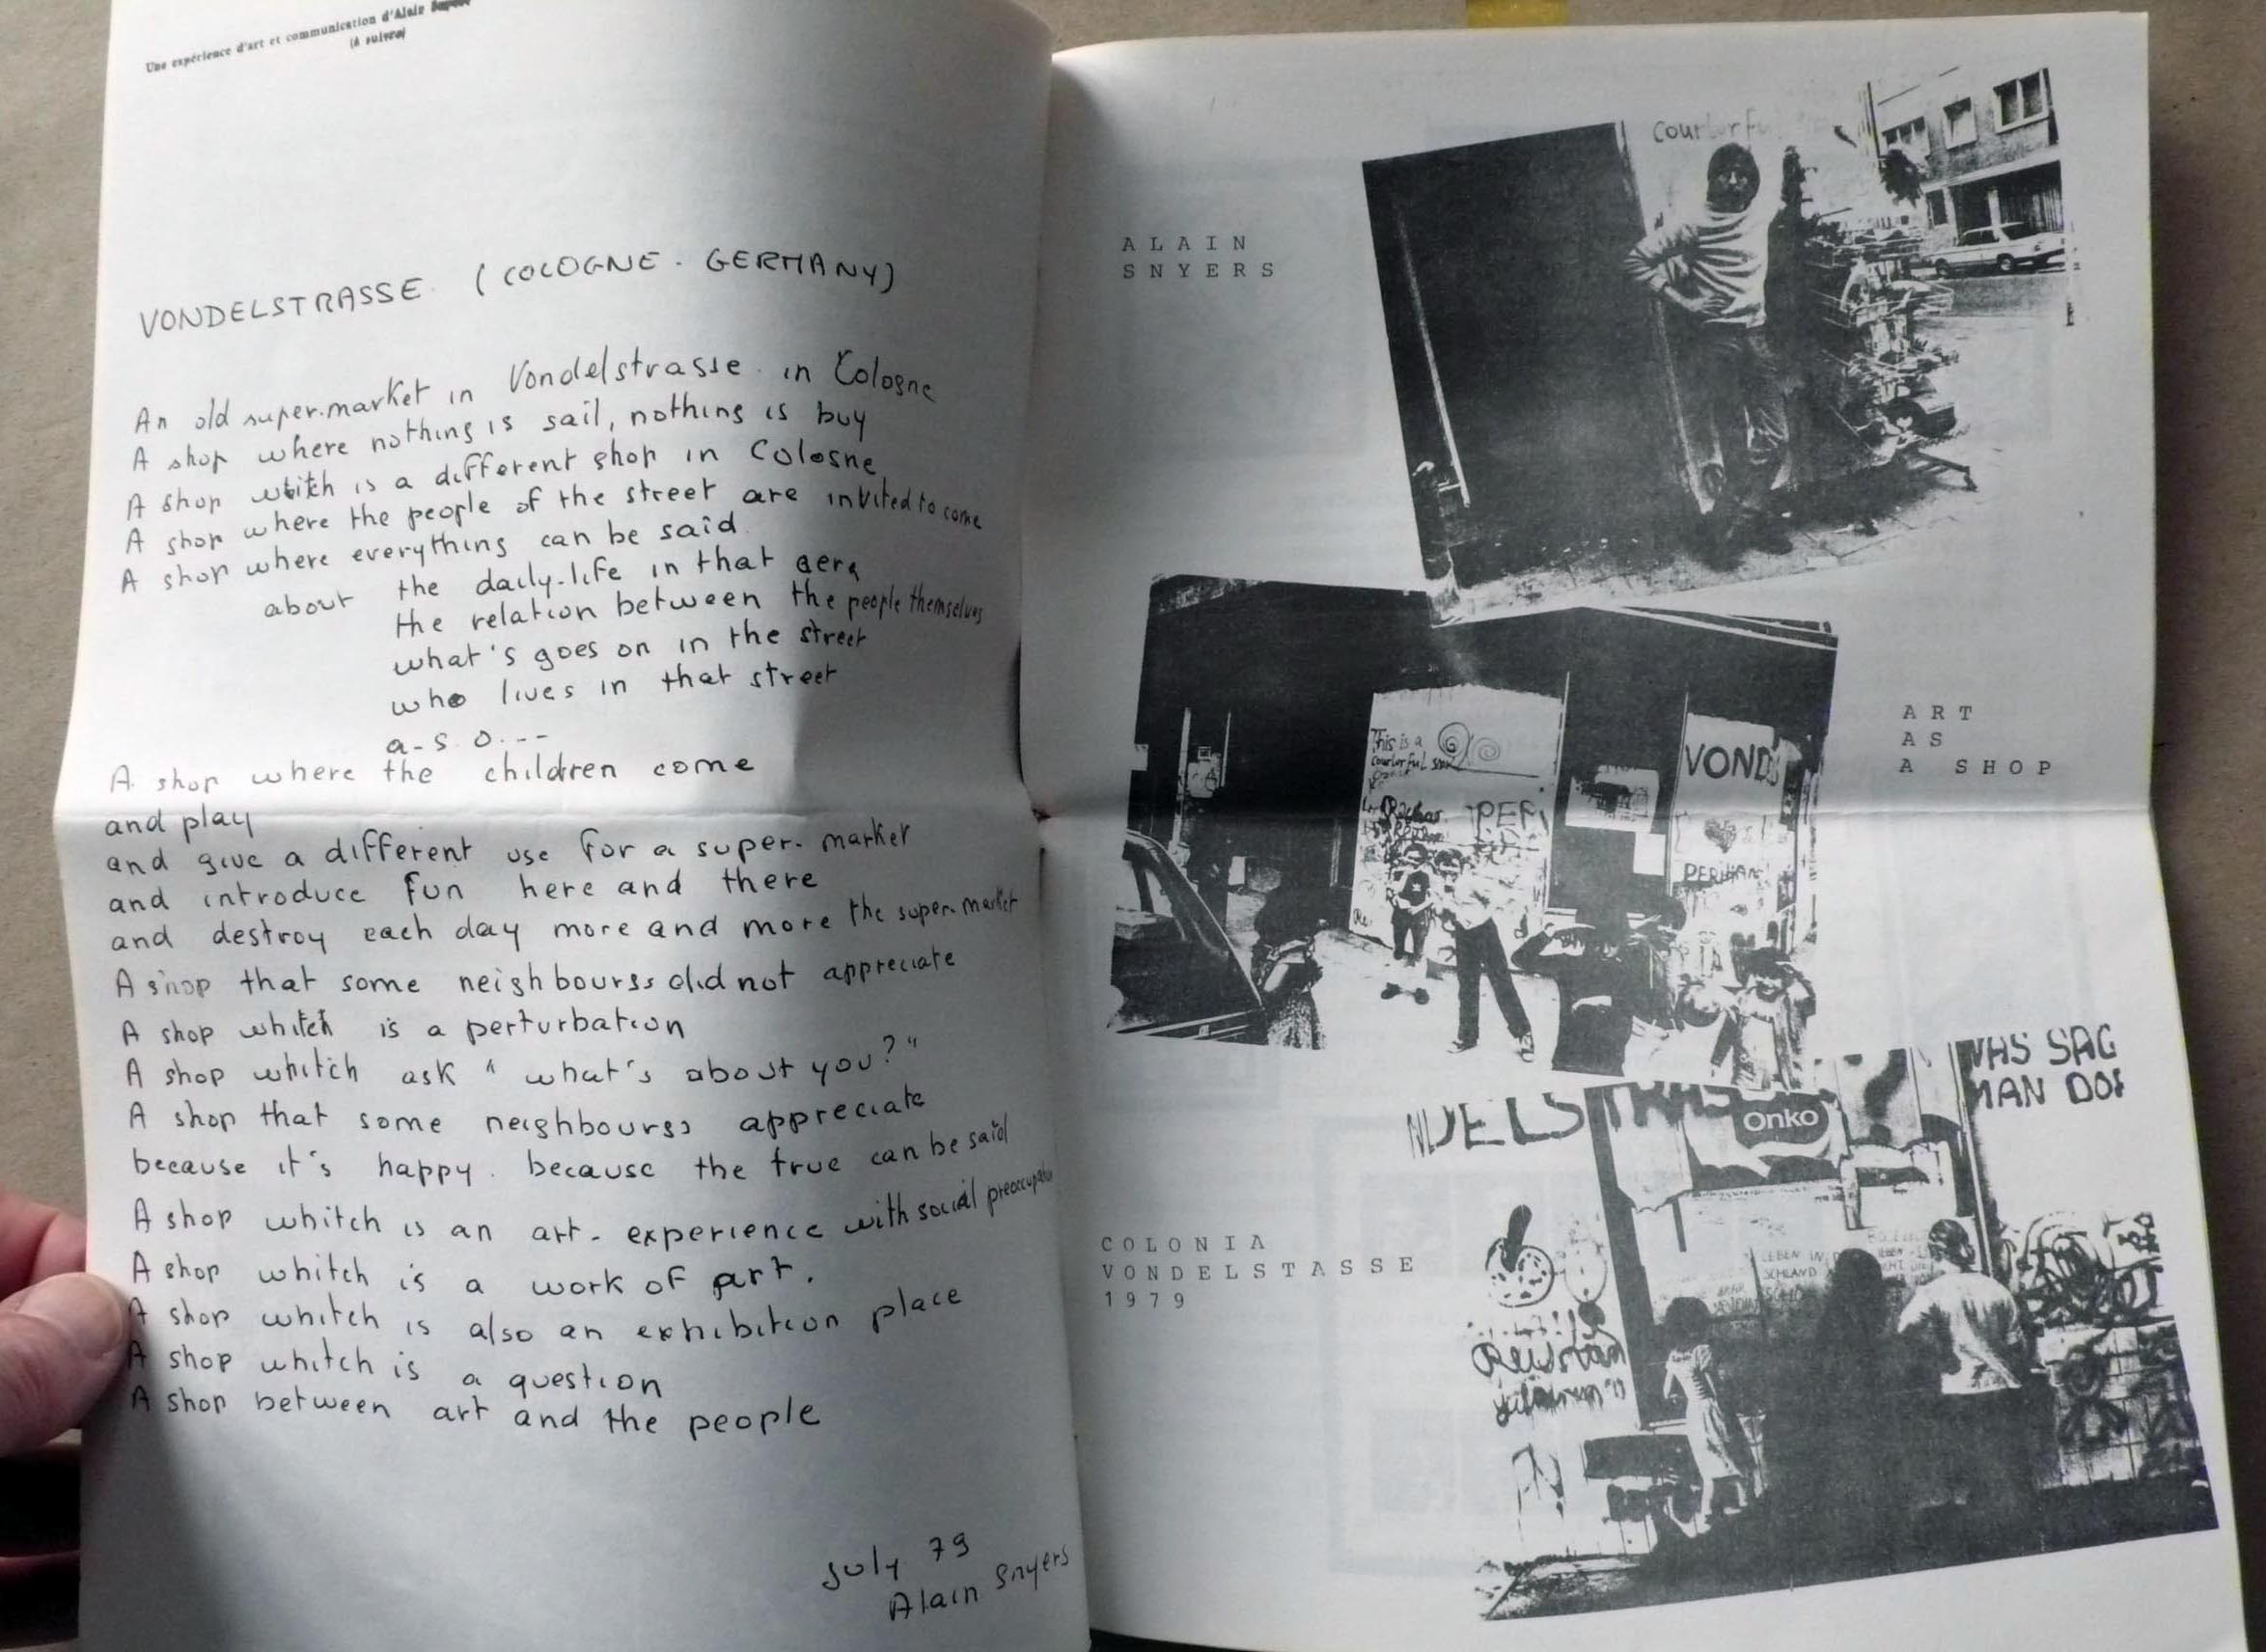 Une expérience d'art et communication d'Alain
(A suivre)
VONDELSTRASSE. (COLOGNE. GERMANY)
An old super.market in Vondelstrasse. in Cologne
A shop where nothing is sail, nothing is buy
A shop whitch is a different shop in Cologne
A shop where the people of the street are invited to come
A shop where everything can be said
about the daily-life in that aera
the relation between the people themselves
what's goes on in the street
who lives in that street
a-s.o...
A shop where the children come
and play
and give a different use for a super-market
and introduce fun here and there
and destroy each day more and more the super-market
A shop that some neighbourgs did not appreciate
A shop whitch is a perturbation
A shop whitch ask "what's about you?"
A shop that some neighbourgs appreciate
because it's happy. because the true can be said
A shop whitch is an art-experience with social preoccupation
A shop whitch is a work of art.
A shop whitch is also an exhibition place
A shop whitch is a question
A shop between art and the people
july 79
Alain Snyers
ALAIN
SNYERS
Courlorful
This is a
courlorful
PER
VOND
ART
AS
A SHOP
NDELSTRAS
Onko
WAS SAG
MAN DO
LEBEN IN
SCHLAND
COLONIA
VONDELSTASSE
1979